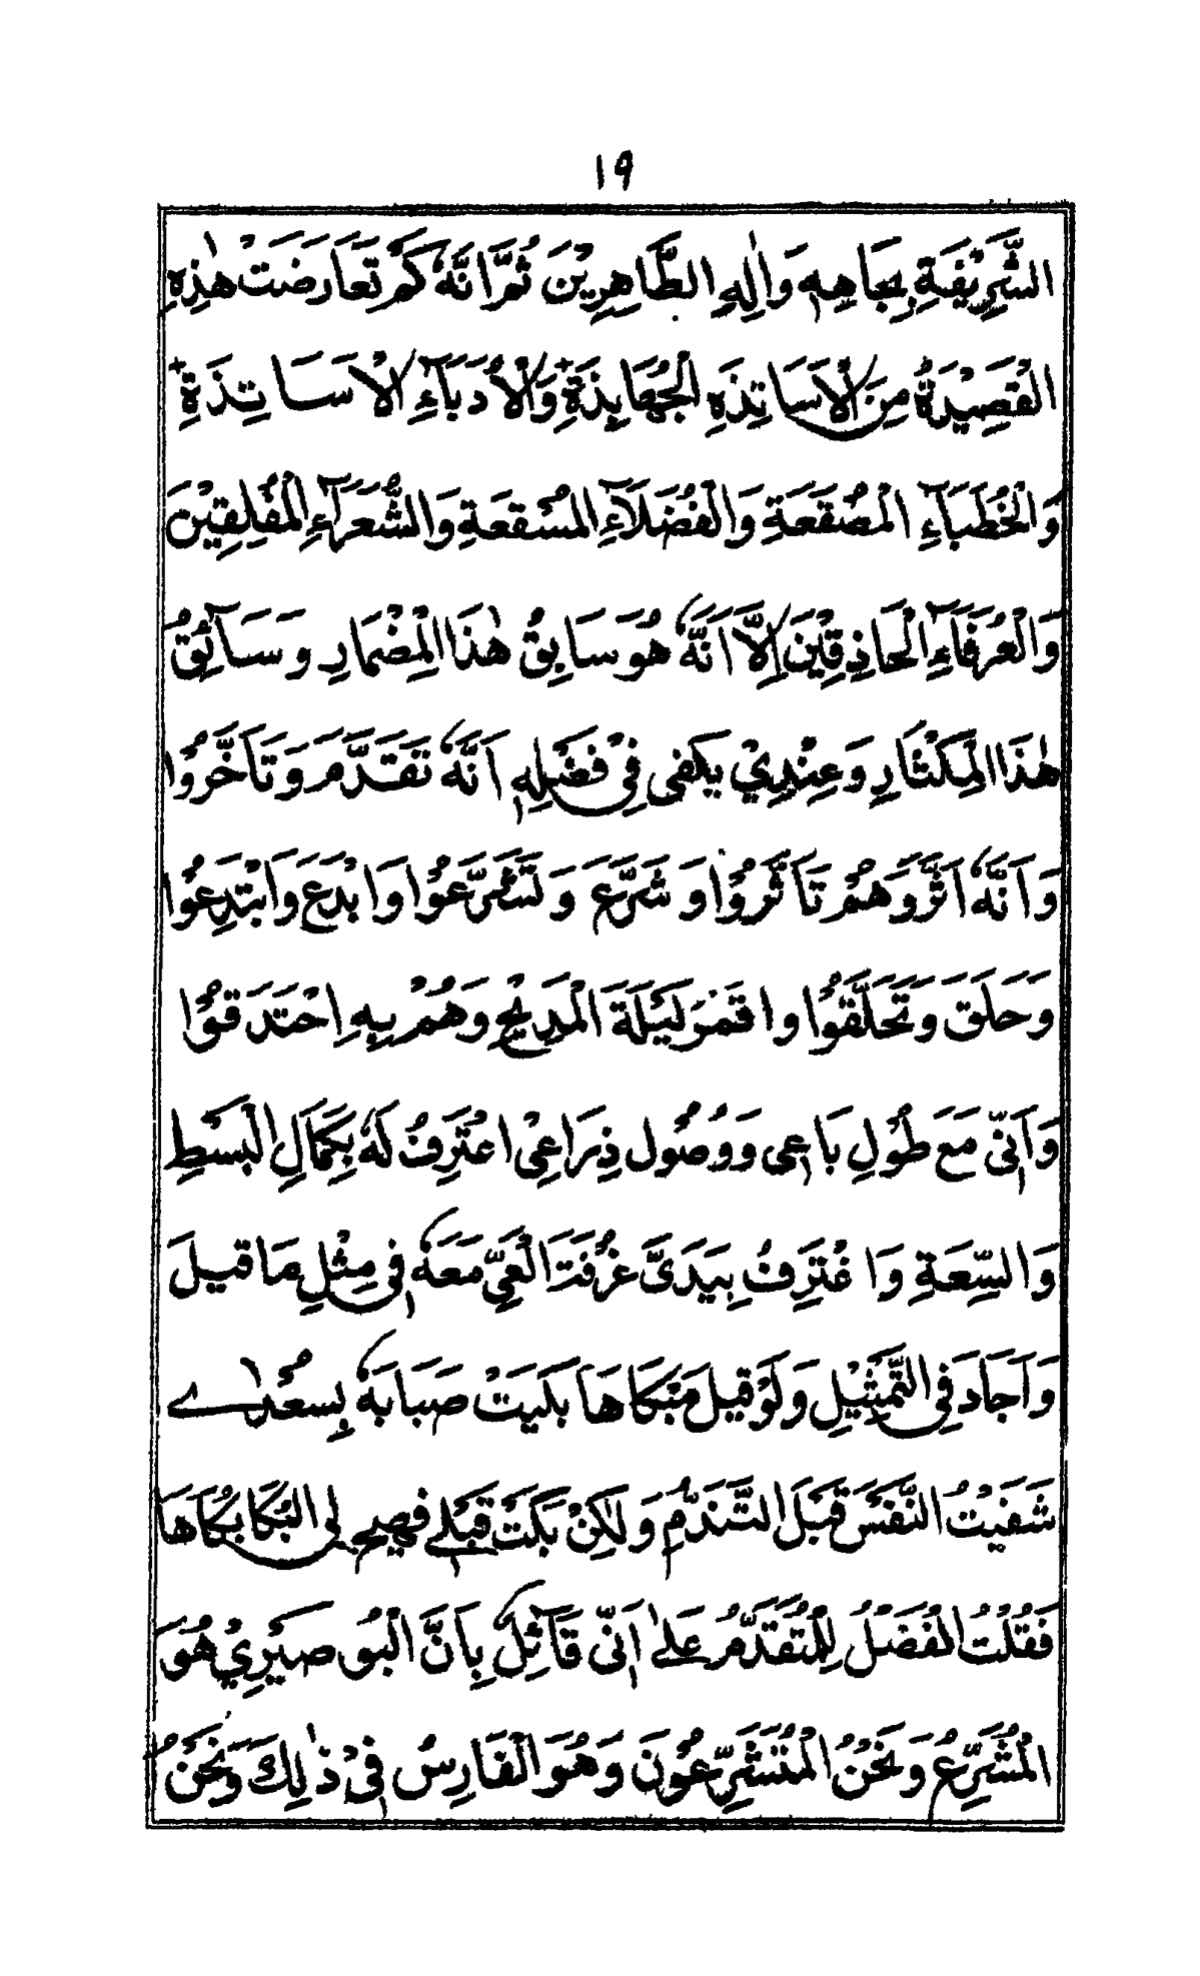 ١٩
الشَّرِيْفَةِ بِجَاهِهٖ وَاٰلِهِ الطَّاهِرِيْنَ ثُمَّ اَنَّهٗ كَمْ تَعَارَضَتْ هٰذِهِ
الْقَصِيْدَةُ مِنَ الْاَسَاتِذَهِ الْجَهَابِذَةِ وَالْاُدَبَآءِ الْاَسَاتِذَةِ
وَالْخُطَبَآءِ الْمَصْقَعَةِ وَالْفُضَلَآءِ الْمُسْقَعَةِ وَالشُّعَرَآءِ الْمُفْلِقِيْنَ
وَالْعُرَفَآءِ الْحَاذِقِيْنَ اِلَّا اَنَّهٗ هُوَ سَابِقُ هٰذَا الْمِضْمَارِ وَسَآئِقُ
هٰذَا الْمِكْثَارِ وَعِنْدِيْ يَكْفِى فِيْ فَضْلِهٖ اَنَّهٗ تَقَدَّمَ وَتَاَخَّرُوْا
وَاَنَّهٗ اَثَّرَ وَهُمْ تَاَثَّرُوْا وَشَرَّعَ وَتَشَرَّعُوْا وَابْدَعَ وَابْتَدَعُوْا
وَحَلَقَ وَتَحَلَّقُوْا وَاقْمَرَ لَيْلَةَ الْمَدِيْحِ وَهُمْ بِهِ احْتَدَقُوْا
وَاَنِّىْ مَعَ طُوْلِ بَاعِى وَوُصُوْلِ ذِرَاعِىْ اعْتَرِفُ لَهٗ بِكَمَالِ الْبَسْطِ
وَالسِّعَةِ وَاغْتَرِفُ بِيَدَىَّ غُرْفَتَ الْعِىِّ مَعَهٗ فِى مِثْلِ مَا قِيْلَ
وَاَجَادَ فِى التَّمْثِيْلِ وَلَوْ قِيْلَ مَبْكَاهَا بَكَيْتُ صَبَابَهٗ بِسُعْدٰے
شَفَيْتُ النَّفْسَ قَبْلَ التَّنَدُّمِ وَلٰكِنْ بَكَتْ قَبْلِے فَهِيْجٍ لِى الْبُكَا بُكَاهَا
فَقُلْتُ الْفَضْلُ لِلْمُتَقَدَّمُ عَلٰى اَنِّىْ قَآئِلٌ بِاَنَّ الْبُوْصِيْرِيْ هُوَ
الْمُشَرِّعُ وَنَحْنُ الْمُتَشَرِّعُوْنَ وَهُوَ الْفَارِسُ فِيْ ذٰلِكَ وَنَحْنُ